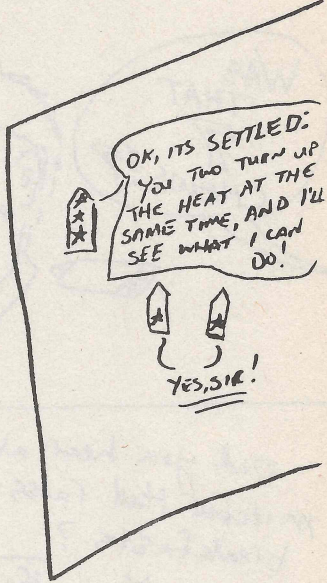 OK, ITS SETTLED:
YOU TWO TURN UP
THE HEAT AT THE
SAME TIME, AND I'LL
SEE WHAT I CAN
DO!
YES, SIR!